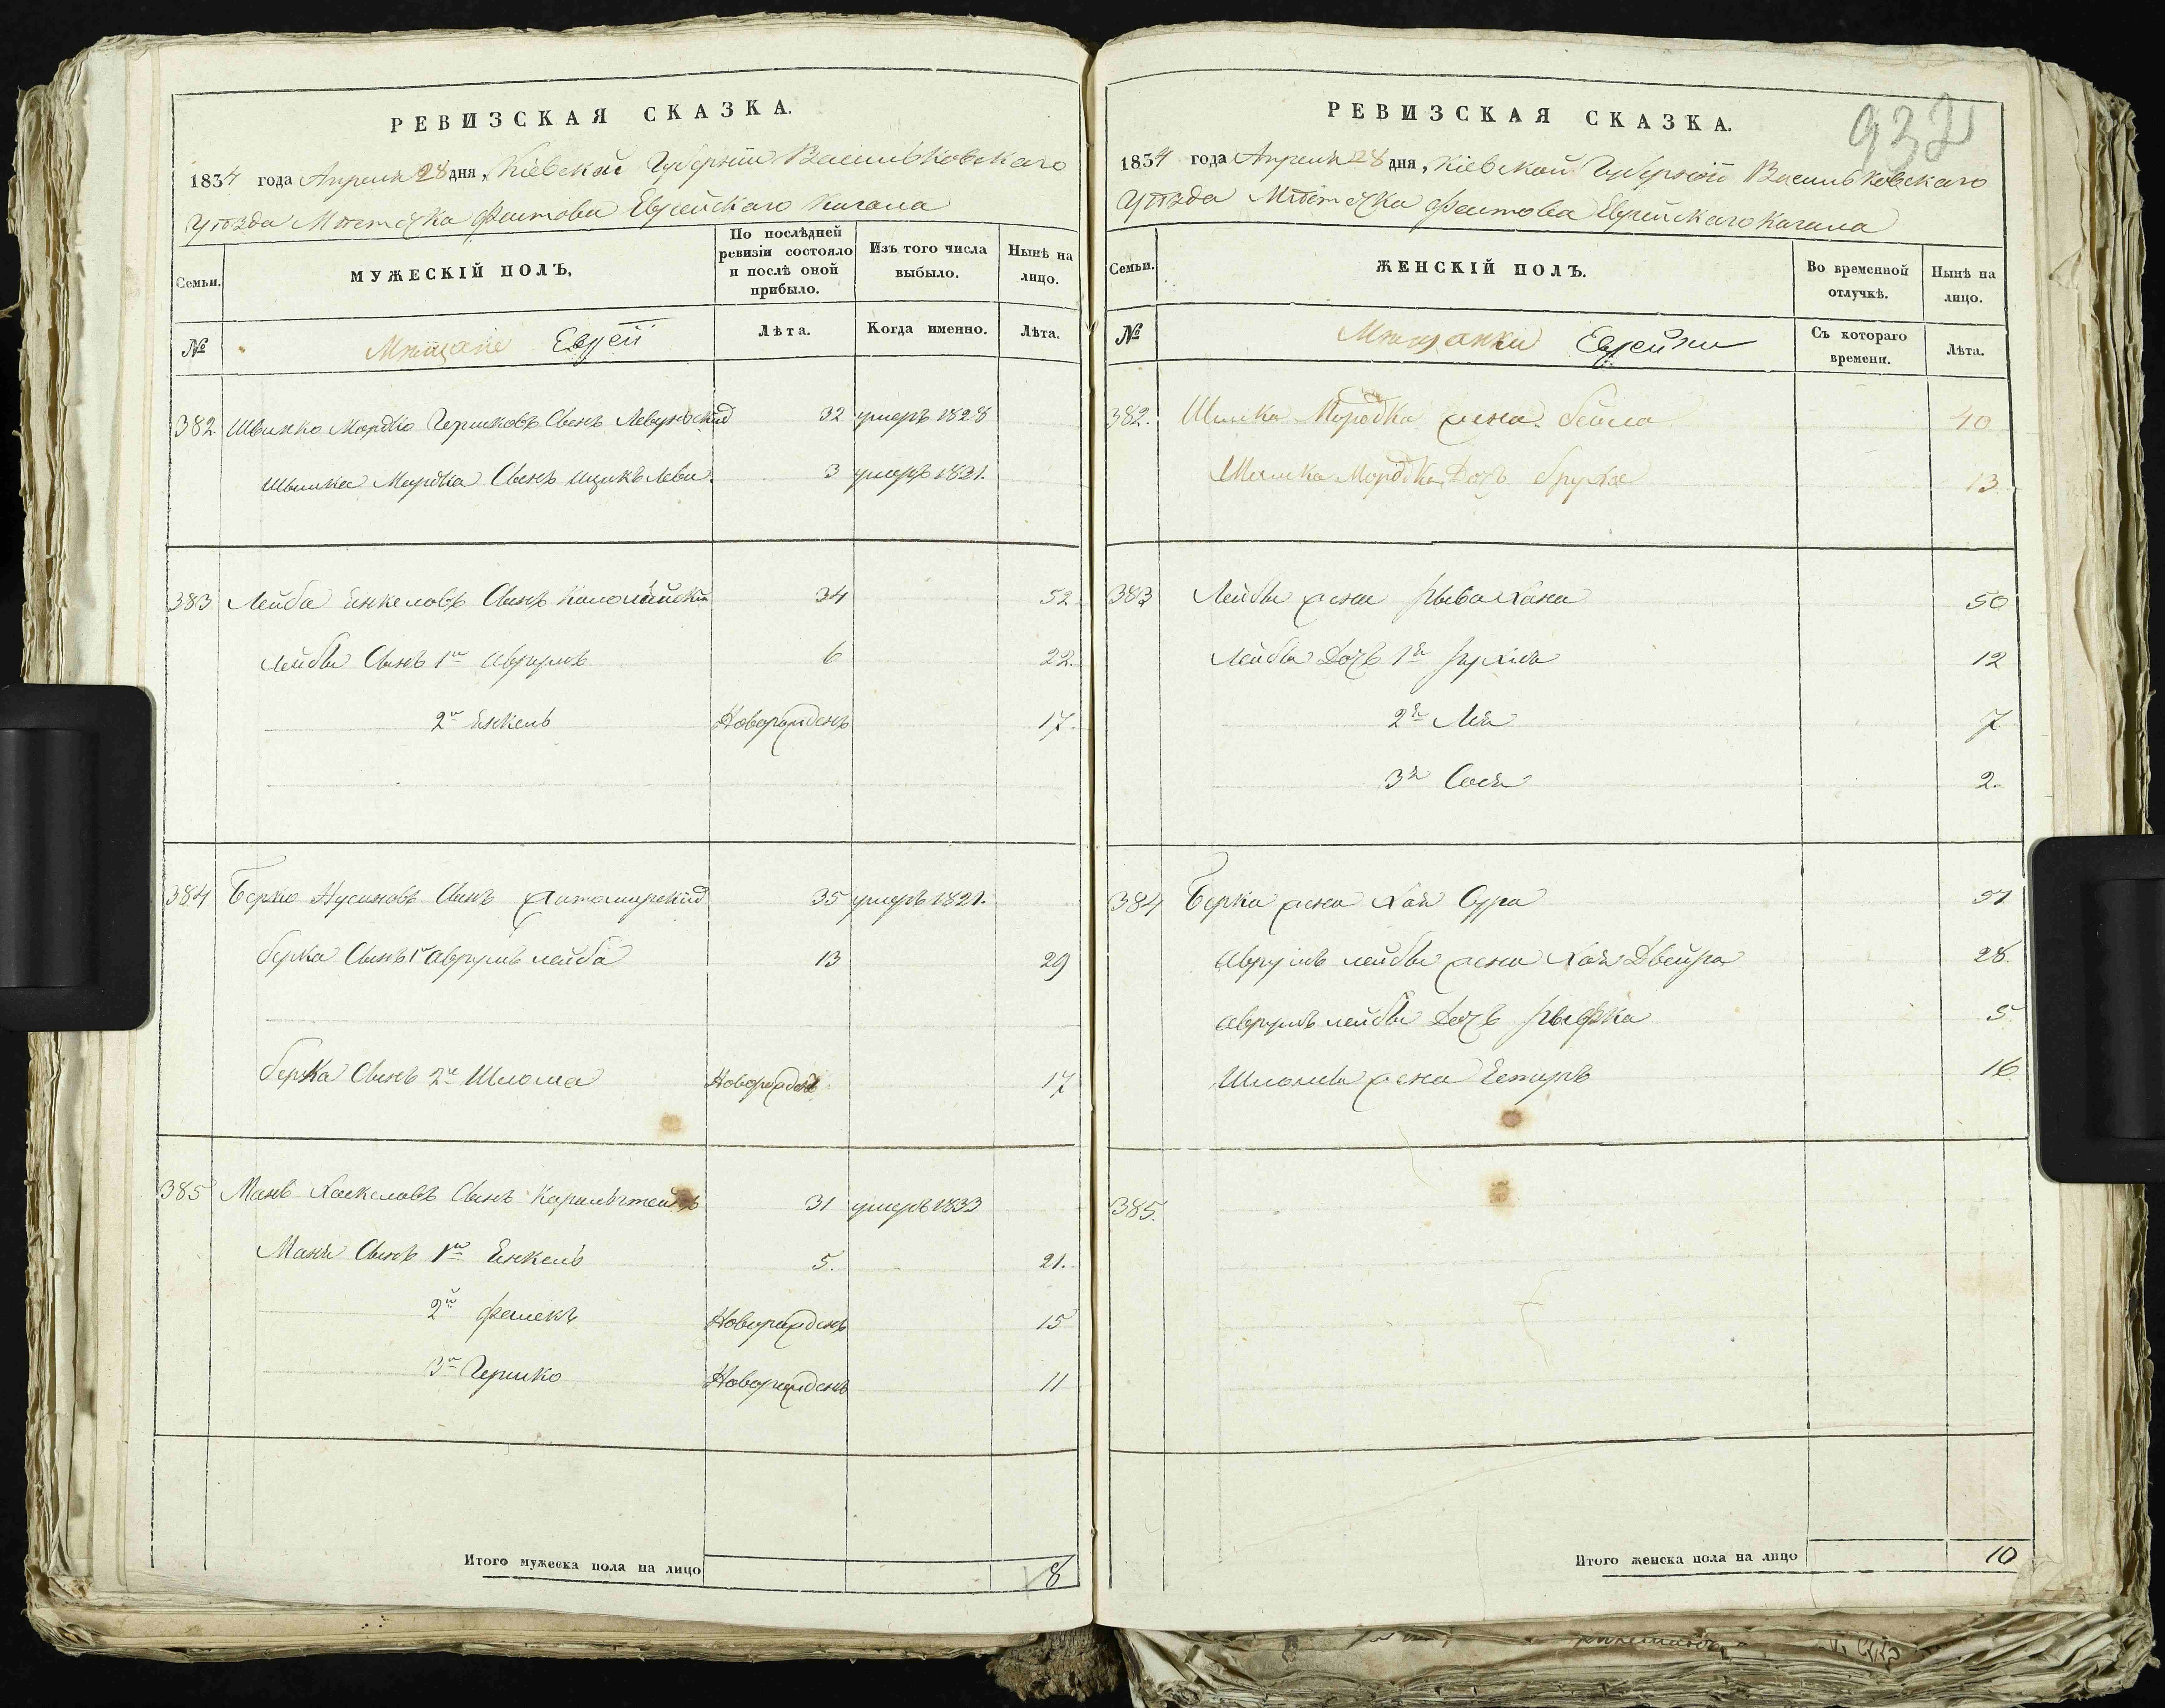 РЕВИЗСКАЯ СКАЗКА.
1834 года Апреля 28 дня, Кіевской Губерніи Васильковскаго
Уѣзда Мѣстечка Фастова Еврейскаго Кагала
Семьи.
МУЖЕСКІЙ ПОЛЪ.
По послѣдней ревизіи состояло и послѣ оной прибыло.
Изъ того числа выбыло.
Нынѣ на лицо.
№
Мѣщане Евреи
Лѣта.
Когда именно.
Лѣта.
382. Мордко Гершковъ Сынъ 32 умеръ 1828
Мордка Сынъ Ицикъ Леви 3 умеръ 1831.
383 Лейба Енкеловъ Сынъ 34 52
Лейбы Сынъ 1й Аврумъ 6 22.
2й Енкель Новорожденъ 17.
384 Берко Нусиновъ Сынъ Житомирскій 35 умеръ 1821.
Берка Сынъ 1й Аврумъ лейба 13 29
Берка Сынъ 2й Шлома Новорожден 17
385 Мань Хаскеловъ Сынъ 31 умеръ 1833
Маня Сынъ 1й Енкель 5. 21.
2й Новорожденъ 15
3й Гершко Новорожденъ 11
Итого мужеска пола на лицо 8
932
РЕВИЗСКАЯ СКАЗКА.
1834 года Апреля 28 дня, Кіевской Губерніи Васильковскаго
Уѣзда Мѣстечка Фастова Еврейскаго Кагала
Семьи.
ЖЕНСКІЙ ПОЛЪ.
Во временной отлучкѣ.
Нынѣ на лицо.
№
Мѣщанки Еврейки
Съ котораго времени.
Лѣта.
382. Мордка жена Бейла 40
Мордка Дочь Бруха 13
383 Лейбы жена Рыва Хана 50
Лейбы Дочь 1я 12
2я Лея 7
3я Сося 2.
384 Берка жена Хая Сура 51
Аврумъ лейбы жена Хая Двейра 28.
Аврумъ лейбы Дочь Рыфка 5
Шломы жена Естеръ 16
385.
Итого женска пола на лицо 10